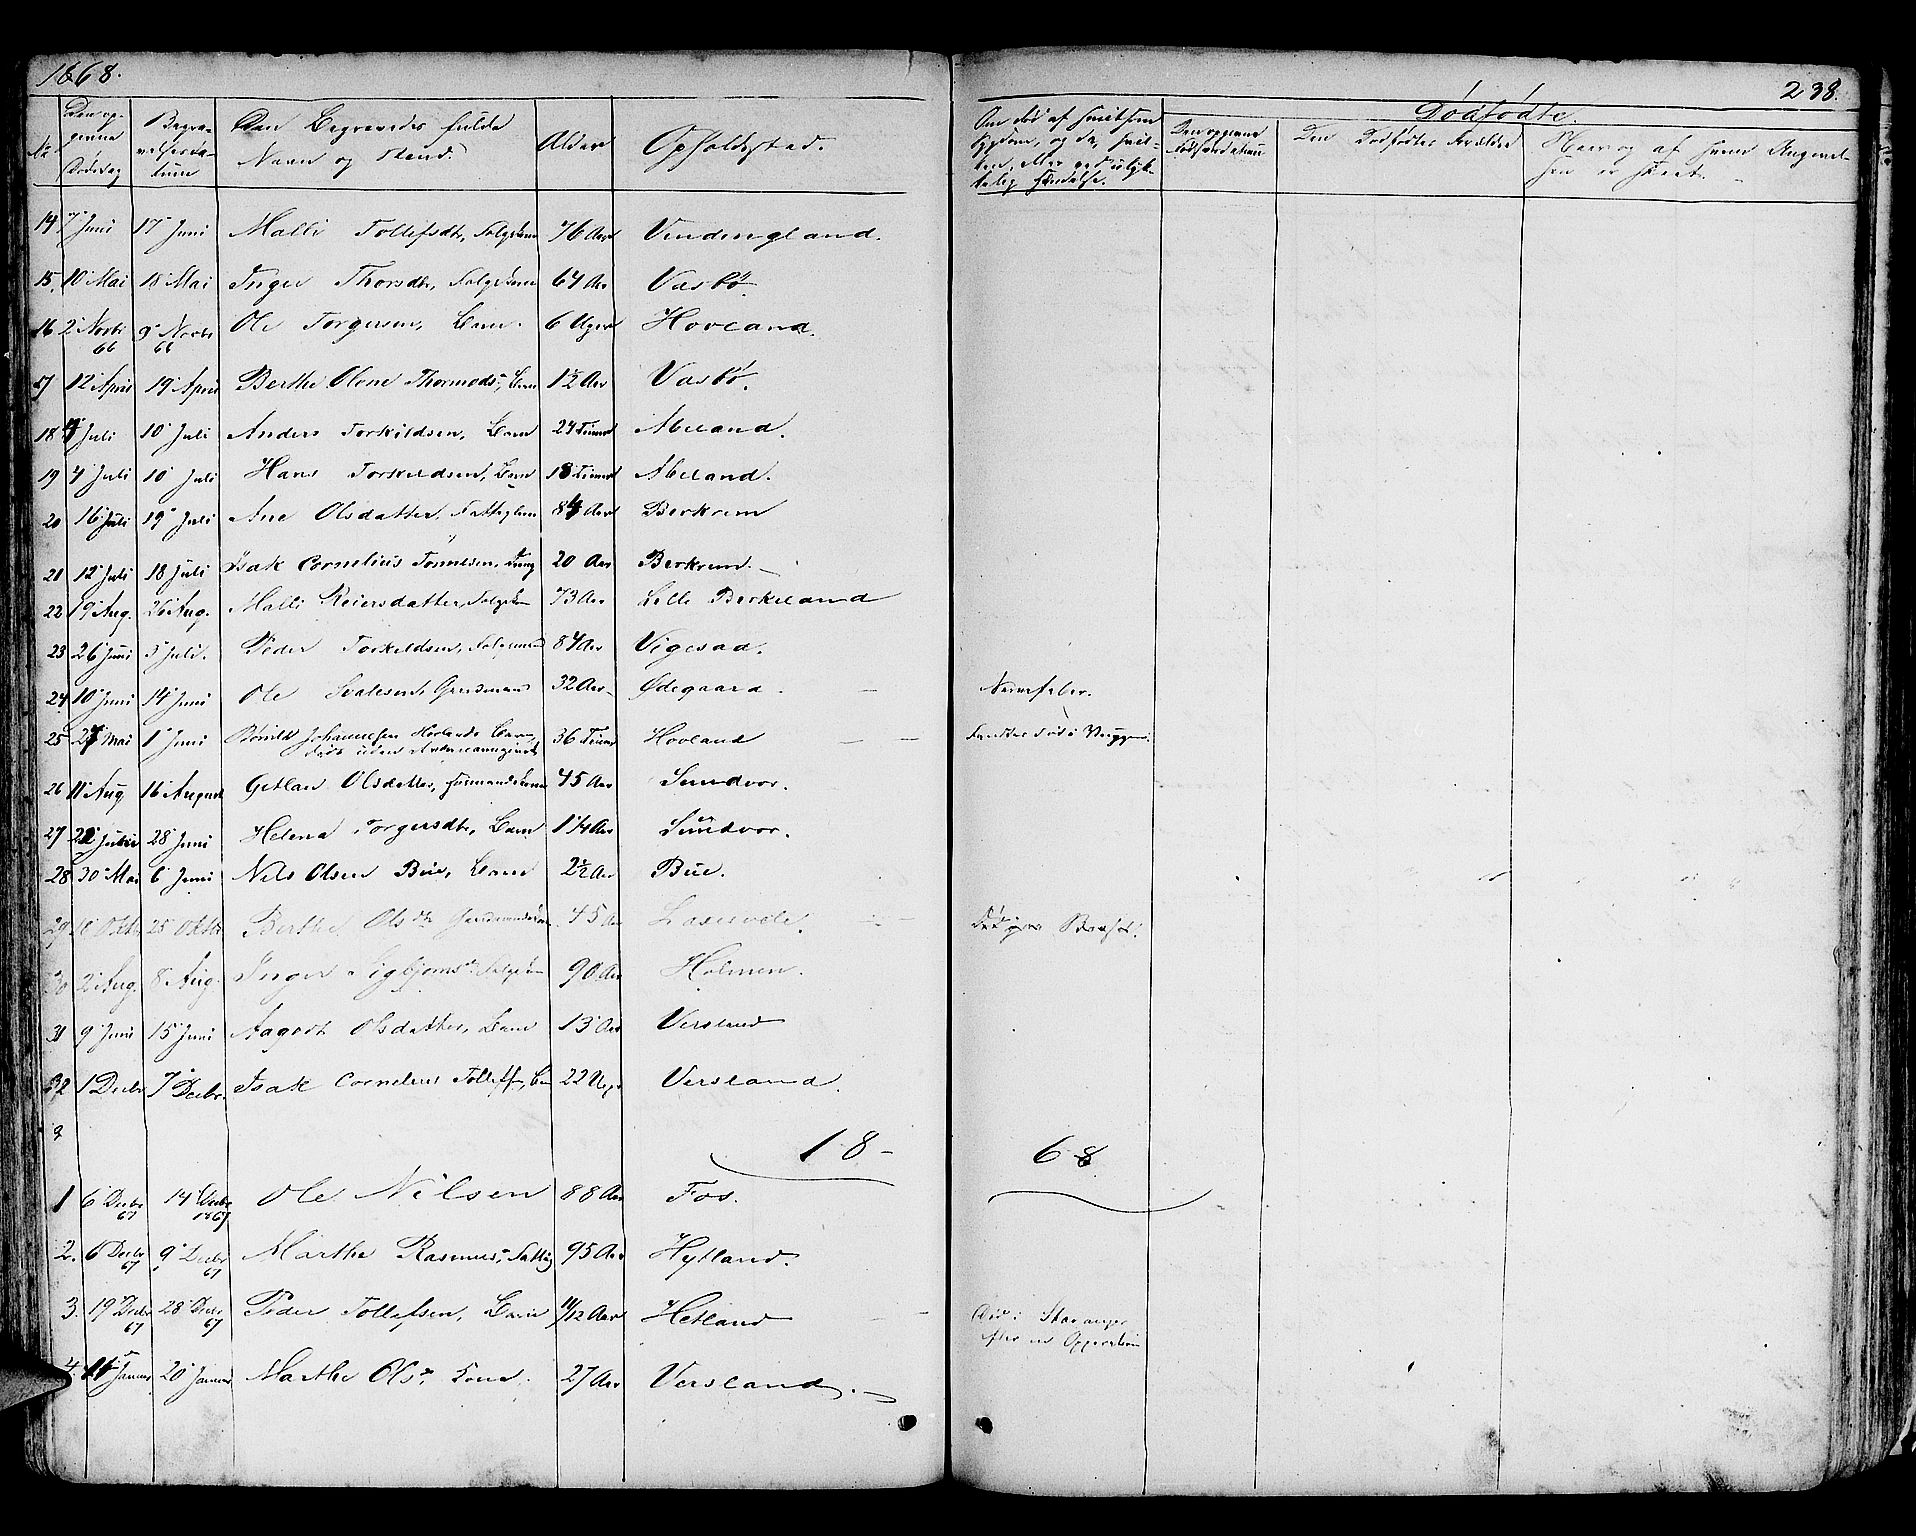 1868.
238.
No
Den opgivne Dødsdag
Begravelsesdatum
Den Begravedes fulde Navn og Stand.
Alder
Opholdssted.
Om død af smitsom Sygdom, og da, hvilken, eller ved ulykkelig Hændelse.
Dødfødte.
Den opgivne Fødselsdatum
Den Dødfødtes Forældre
Naar og af hvem Angivelsen er skeet.
14 7 Juni 17 Juni Malli Tollefsdtr, Folgekone 76 Aar Vindingland.
15. 10 Mai 18 Mai Inger Thorsdtr, Folgekone 64 Aar Vasbø.
16 2 Novbr 66 9 Novbr 66 Ole Torgersen, Barn. 6 Uger Hovland.
17 12 April 19 April Berthe Olene Thormods-, Barn 1½ Aar Vasbø.
18 4 Juli 10 Juli Anders Torkildsen, Barn 24 Timer Abeland.
19 4 Juli 10 Juli Hans Torkildsen, Barn 18 Timer Abeland.
20 16 Juli 19 Juli Ane Olsdatter, Fattiglem 84 Aar Berkrem
21 12 Juli 18 Juli Isak Cornelius Tonnesen, Dreng 20 Aar Berkrem.
22 19 Aug. 26 Aug. Malli Reiersdatter, Folgekone 73 Aar Lille Berkeland
23 26 Juni 5 Juli. Peder Torkildsen, Folgemand 84 Aar Vigesad.
24 10 Juni 14 Juni Ole Gaardmand 32 Aar Ødegaard. Nervefeber.
25 27 Mai 1 Juni Johannessen Hovlands Barn, døde uden 36 Timer Hovland fandtes død i Vuggen.
26 11 Aug 16 August Olsdatter, 45 Aar Sundvor.
27 28 Juni Helena Torgersdtr, Barn 1 1/4 Aar Sundvor.
28 30 Mai 6 Juni Nils Olsen Bue, Barn 2½ Aar Bue.
29 Oktbr 25 Oktbr Berthe Olsdtr 45 Aar
30 2 Aug. 8 Aug. Inger Sigbjørns- Folgekone 90 Aar Holmen.
31 9 Juni 15 Juni Aagodt Olsdatter, Barn 13 Aar Versland
32 1 Decbr 7 Decbr. Isak Cornelius Tollefs-, Barn 22 Uger Versland.
18- 68
1 6 Decbr 67 14 Decbr 1867 Ole Nilsen 88 Aar Fos.
2. 6 Decbr 67 9 Decbr 67 Marthe Rasmus-, Fattig 95 Aar Hytland.
3. 19 Decbr 67 28 Decbr 67 Peder Tollefsen, Barn 11/12 Aar Hetland Død i Stavanger efter en Opperation
4. 20 Januar Marthe Ols-, Kone. 27 Aar Versland.